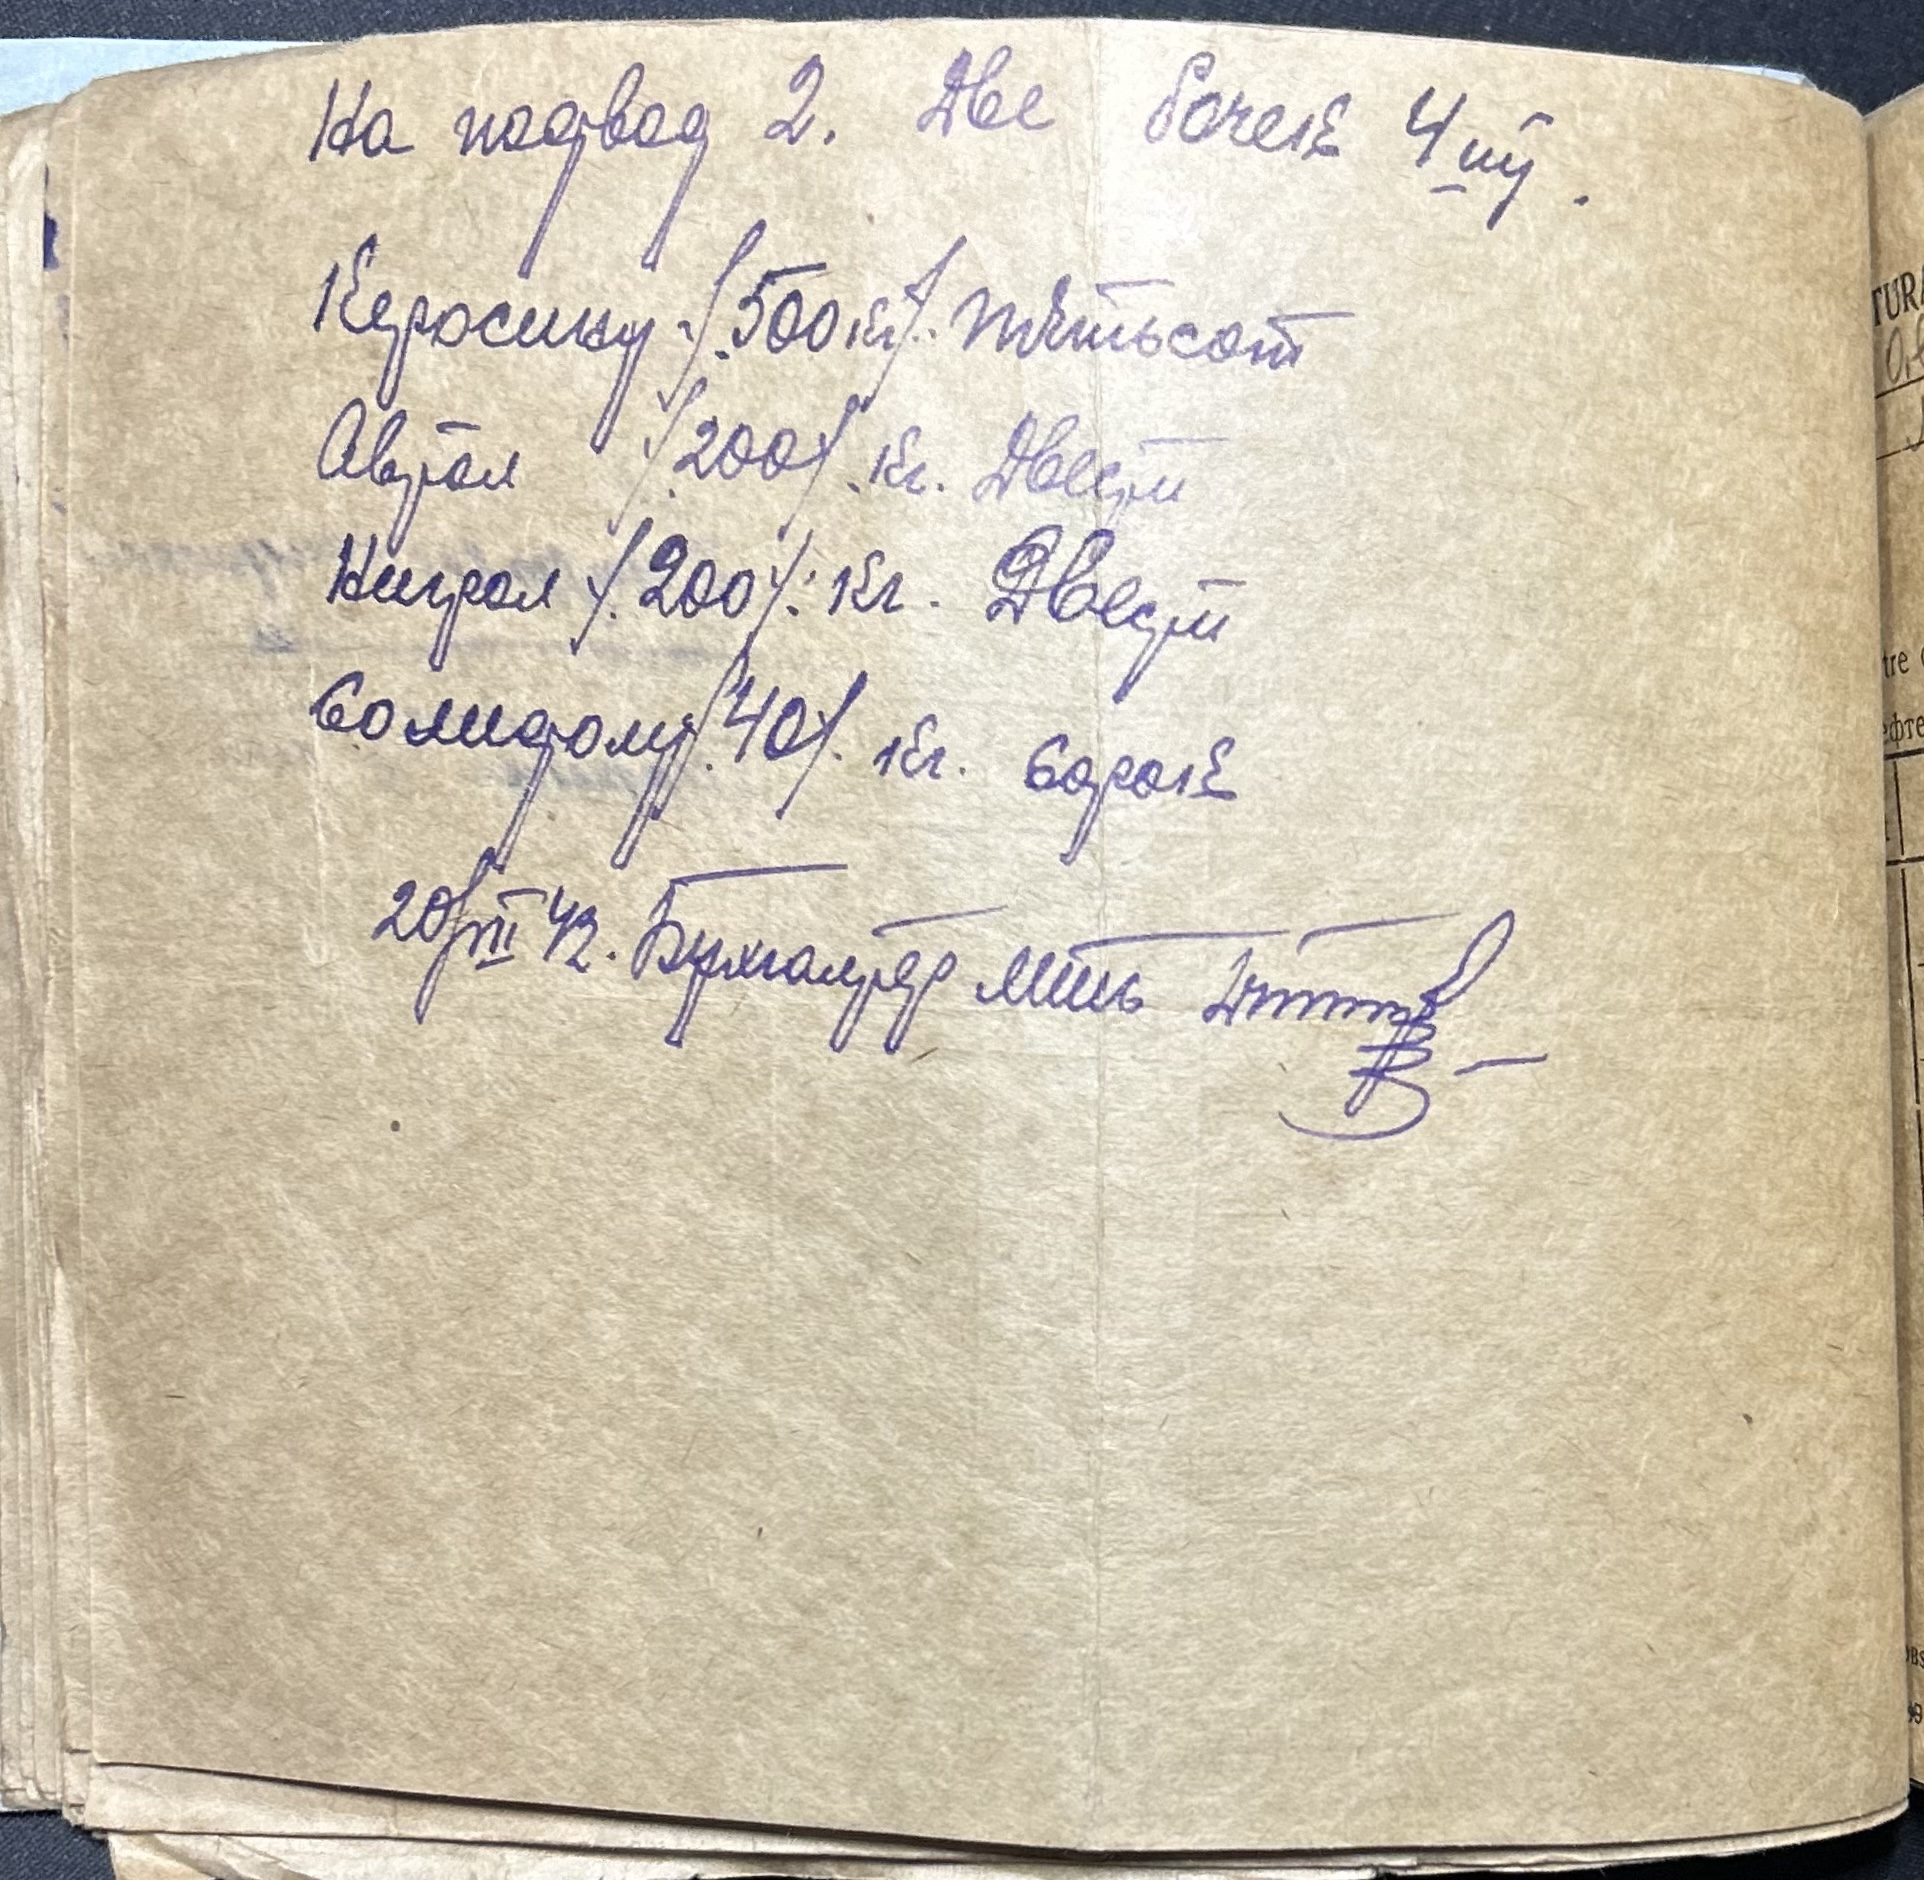 На подвод 2. Две бочек 4 шт.
Керосину /.500 кг/. Пятьсот
Автол /.200/. кг. Двести
Нигрол /.200/. кг. Двести
Солидолу /.40/. кг. Сорок
20/VII 42. Бухгалтер
TURA
tre